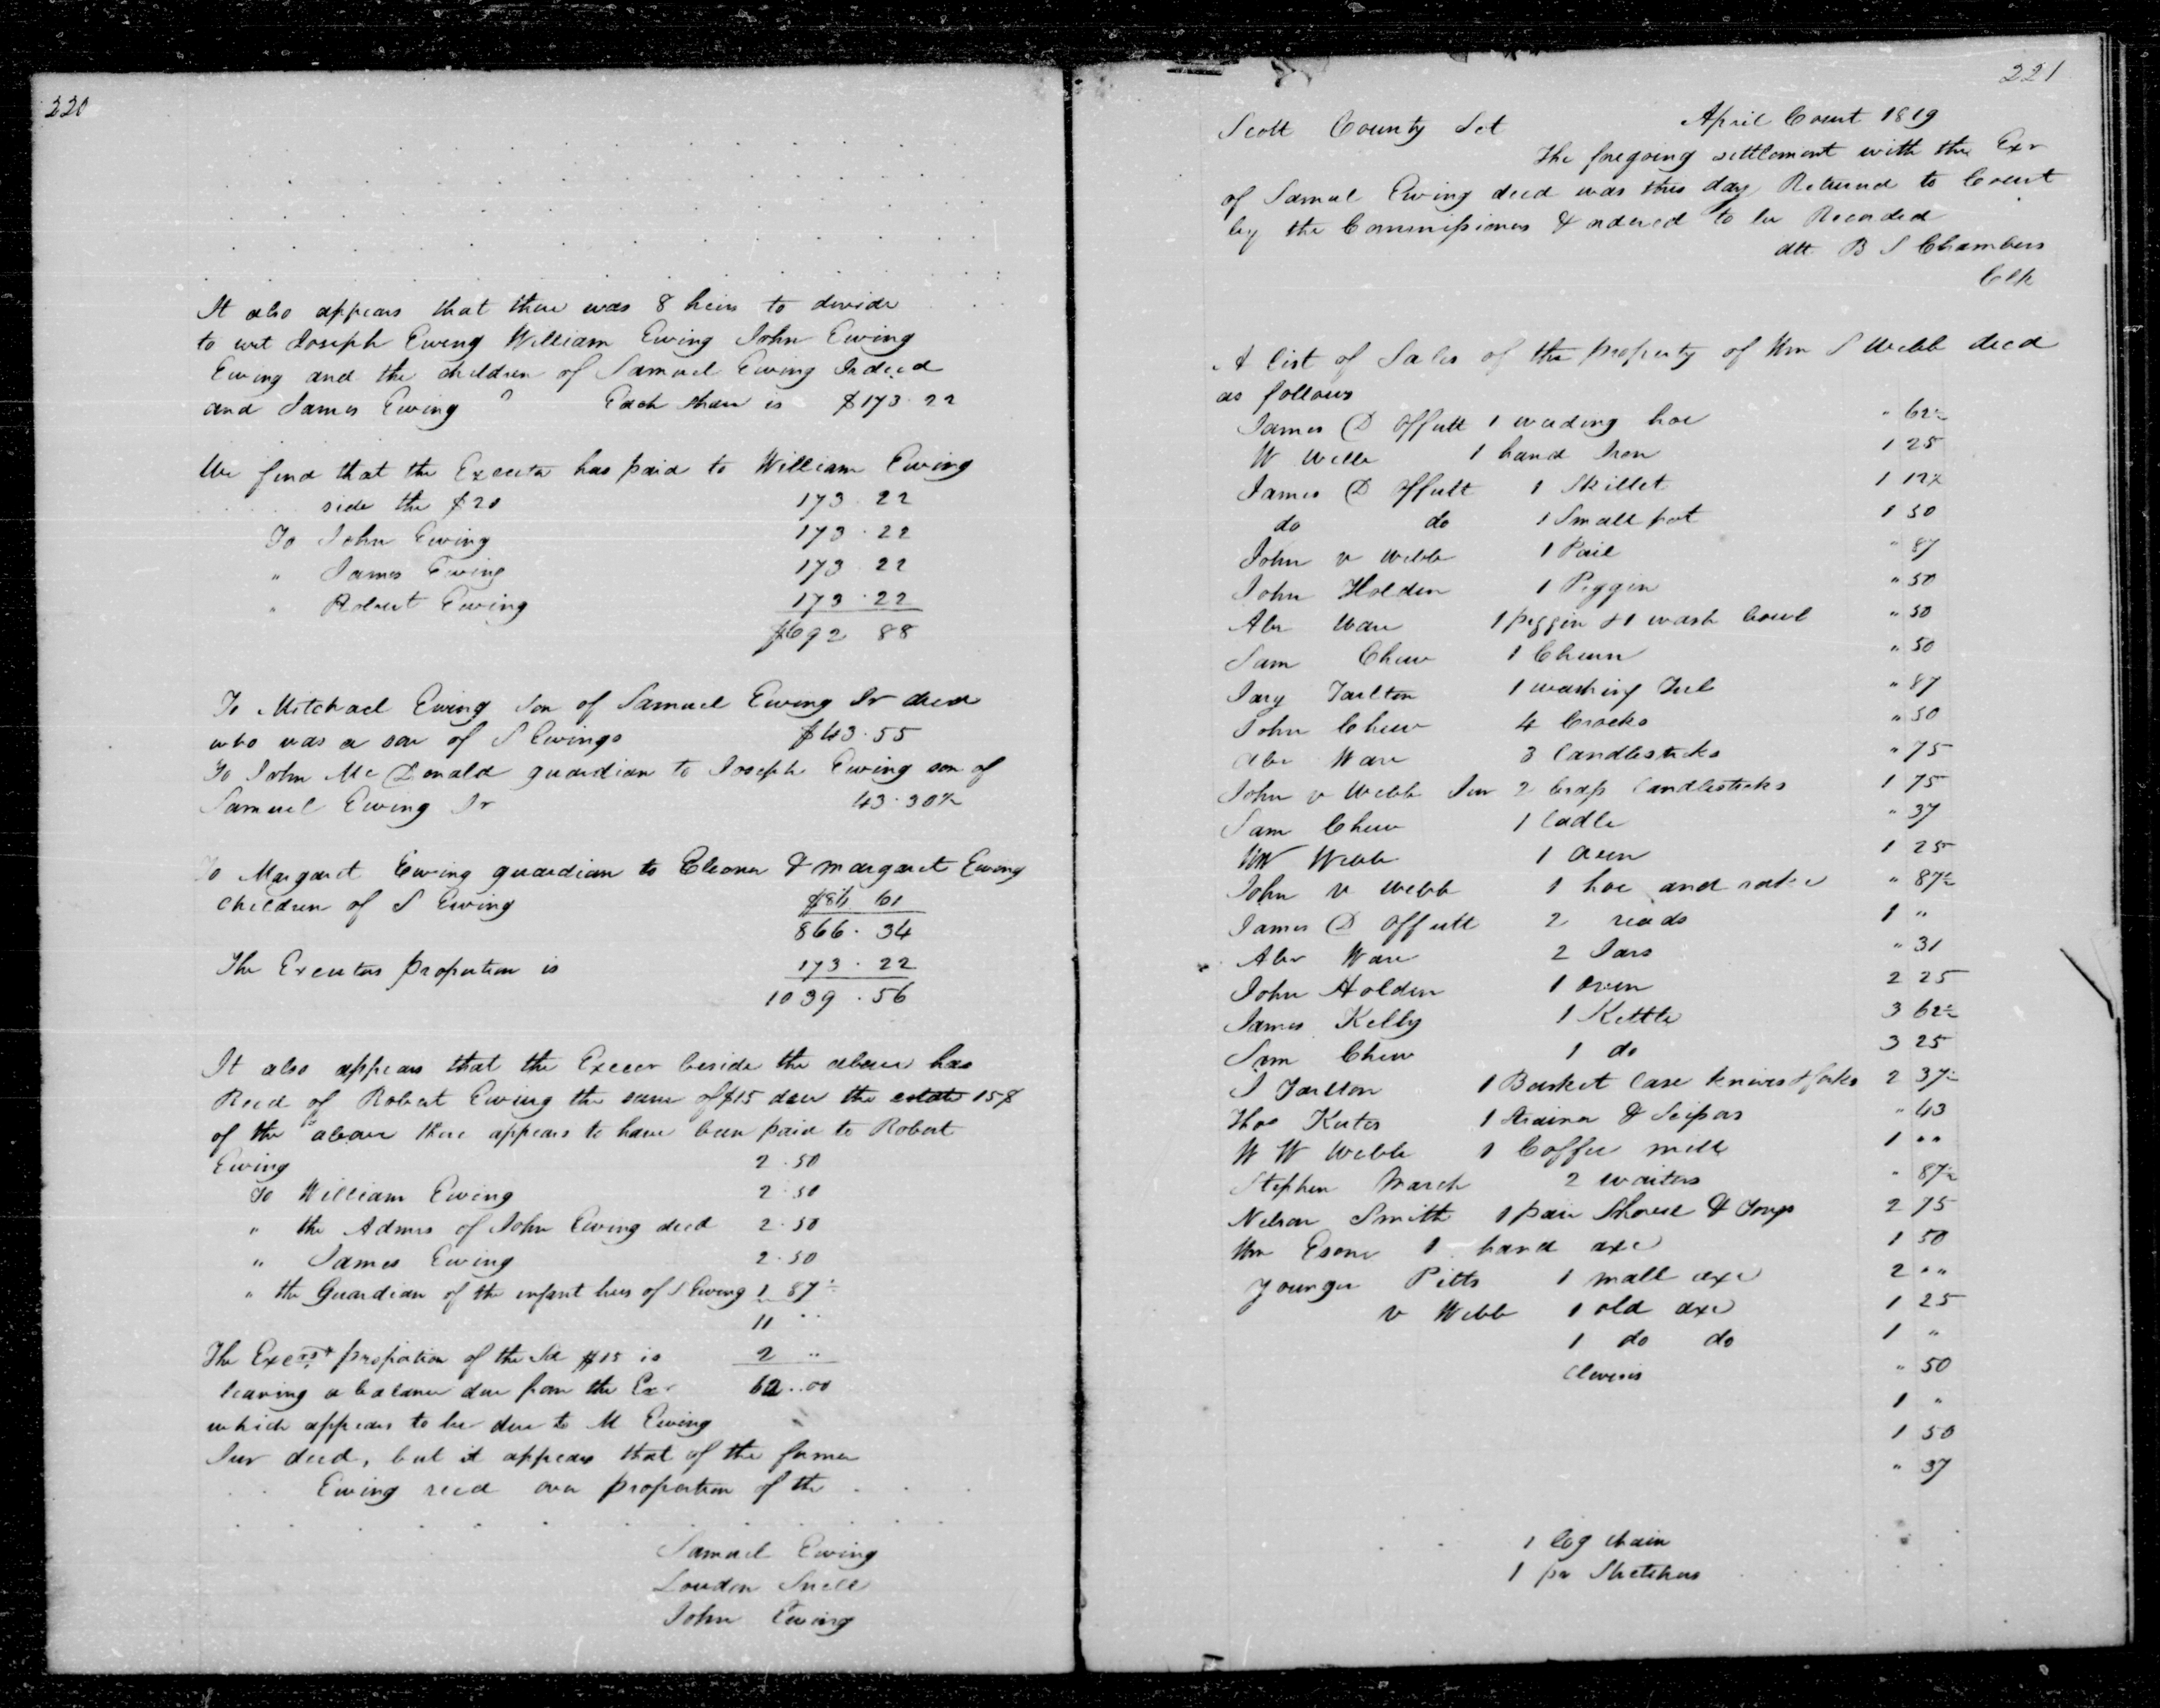 220
It also appears that there was 8 heirs to divide
to wit Joseph Ewing William Ewing John Ewing
Ewing and the children of Samuel Ewing Jr decd
and James Ewing Each share is $173.22
We find that the Executor has paid to William Ewing
side the $20 173.22
To John Ewing 173.22
" James Ewing 173.22
" Robert Ewing 173.22
$692 88
To Mitchael Ewing son of Samuel Ewing Jr decd
who was a son of S Ewings $43.55
To John McDonald guardian to Joseph Ewing son of
Samuel Ewing Jr 43.30½
To Margaret Ewing guardian to Eleoner & Margaret Ewing
children of S Ewing $86 61
866.34
The Executors proportion is 173.22
1039.56
It also appears that the Execor beside the above has
Recd of Robert Ewing the sum of $15 due the estate 15$
of the above there appears to have been paid to Robert
Ewing 2.50
To William Ewing 2.50
" the Admrs of John Ewing decd 2.50
" James Ewing 2.50
" the Guardian of the infant heirs of S Ewing 1 87½
11 ..
The Execrs proportion of the sd $15 is 2 ..
leaving a balance due from the Exr 62..00
which appears to be due to M Ewing
Jur decd, but it appears that of the former
Ewing recd over proportion of the
Samuel Ewing
Loudon Snell
John Ewing
221
Scott County Sct April Court 1819
The foregoing settlement with the Exr
of Samuel Ewing decd was this day Returned to Court
by the Commissioners & ordered to be Recorded
att B S Chambers
Clk
A list of Sales of the property of Wm S Webb decd
as follows
James D Offutt 1 weeding hoe " 62½
W Webb 1 hand Iron 1 25
James D Offutt 1 Skillet 1 12½
do do 1 Small pot 1 50
John v Webb 1 Pail " 87
John Holden 1 Piggin " 50
Abr Ware 1 piggin & 1 wash bowl " 50
Sam Chew 1 Churn " 50
Jary Tarlton 1 washing Tub " 87
John Chew 4 Crocks " 50
Abr Ware 3 Candlesticks " 75
John v Webb Jur 2 brass Candlesticks 1 75
Sam Chew 1 ladle " 37
WW Webb 1 oven 1 25
John v Webb 1 hoe and rake " 87½
James D Offutt 2 reads 1 "
Abr Ware 2 Jars " 31
John Holden 1 oven 2 25
James Kelly 1 Kettle 3 62½
Sam Chew 1 do 3 25
J Tarlton 1 Basket Case knives & forks 2 37½
Thos 1 Strainer & Scissors " 43
W W Webb 1 Coffee mill 1 ""
Stephen March 2 waiters " 87½
Nelson Smith 1 pair Shovel & Tongs 2 75
Wm 1 hand axe 1 50
Younger Pitts 1 small axe 2 ""
v Webb 1 old axe 1 25
1 do do 1 "
Clevises " 50
1 "
1 50
" 37
1 log chain
1 pr Stretchers